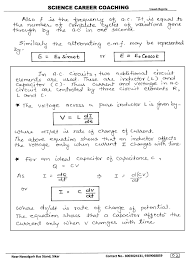 SCIENCE CAREER COACHING
Also f is the frequency of a.c. It is equal to
the number of complete cycles of variations gone
through by the ac in one second.
Similarly the alternating e.m.f. may be represented
by
E = E₀ Sinωt or E = E₀ Cosωt
In A.C. Circuits, two additional circuit
elements are also used These are inductor (L) and
capacitor (C). Thus current and voltage in A.C.
circuit are controlled by three circuit elements
* The voltage across a pure inductor L is given
by
V = L dI/dt
where dI/dt is rate of change of current.
The above equation shows that an inductor affects
the voltage only when current is changing.
* For an ideal Capacitor of Capacitance C,
I = C dV/dt
where dV/dt is rate of change of potential
The equation shows that a capacitor affects the
current only when voltage is changing.
Near Nawalgarh Bus Stand, Sikar